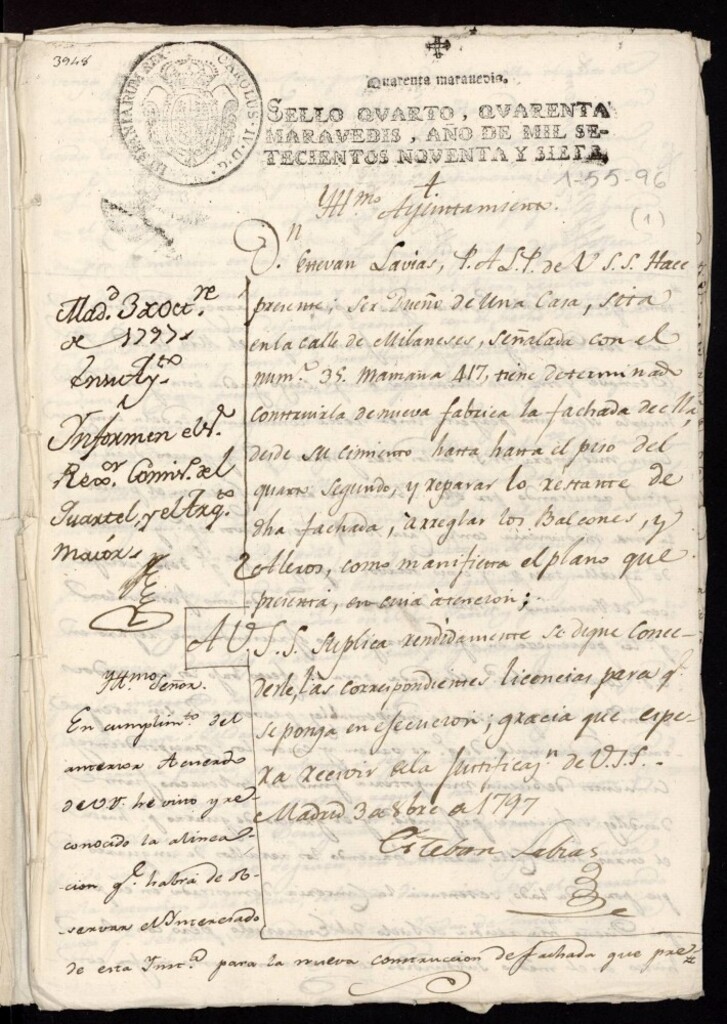 3948
CAROLUS IV D. G.
HISPANIARUM REX
Quarenta maravedis.
SELLO QVARTO, QVARENTA
MARAVEDIS, AÑO DE MIL SE-
TECIENTOS NOVENTA Y SIETE
1-55-96
(1)
Yll.mo Ayuntamiento.
D.n Estevan Lavias, P. A L. P. de V S. S. Hace
presente; ser Dueño de una Casa, sita
en la calle de Milaneses, señalada con el
num.o 35. Manzana 417, tiene determinado
construirla de nueva fabrica la fachada de ella,
desde su cimiento hasta hasta el piso del
quarto segundo, y reparar lo restante de
dha fachada, àrreglar los Balcones, y
Aleros, como manifiesta el plano que
presenta, en cuia àtencion;
A V. S. S. Suplica rendidamente se digne conce-
derle, las correspondientes licencias para q.e
se ponga en efecucion; gracia que espe-
ra recivir de la Justificaz.n de V.S.S.
Madrid 3 de 8bre de 1797
Esteban Labias
Mad.d 3 de Oct.re
de 1797
En su Ay.to
Informen el S.r
Rex.or Comis.o del
Quartel, y el Arq.o
maior
Yll.mo Señor.
En cumplim.to del
anterior Acuerdo
de V.Y. he visto y re-
conocido la alinea-
cion q.e habrá de ob-
servar el Interesado
de esta Inst.a para la nueva construccion de fachada que pre-